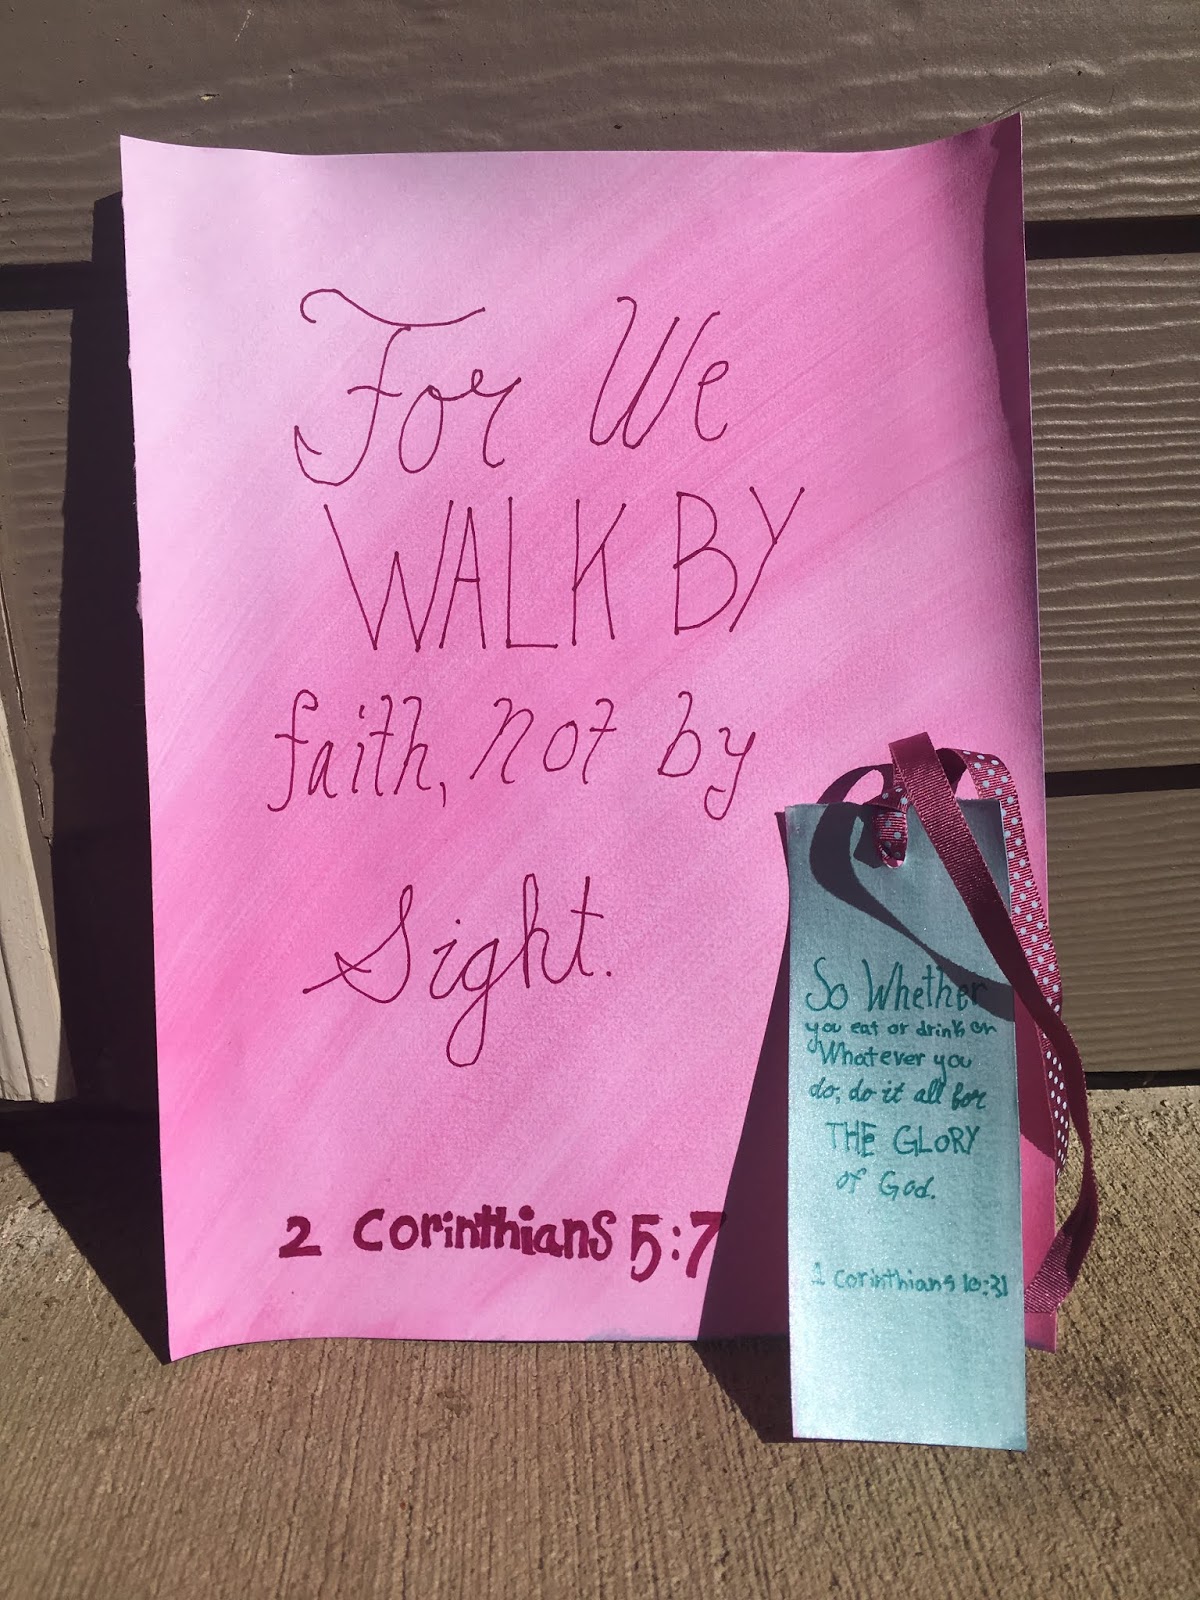 For We
WALK BY
faith, not by
Sight.
2 Corinthians 5:7
So Whether
you eat or drink or
Whatever you
do, do it all for
THE GLORY
of God.
1 Corinthians 10:31